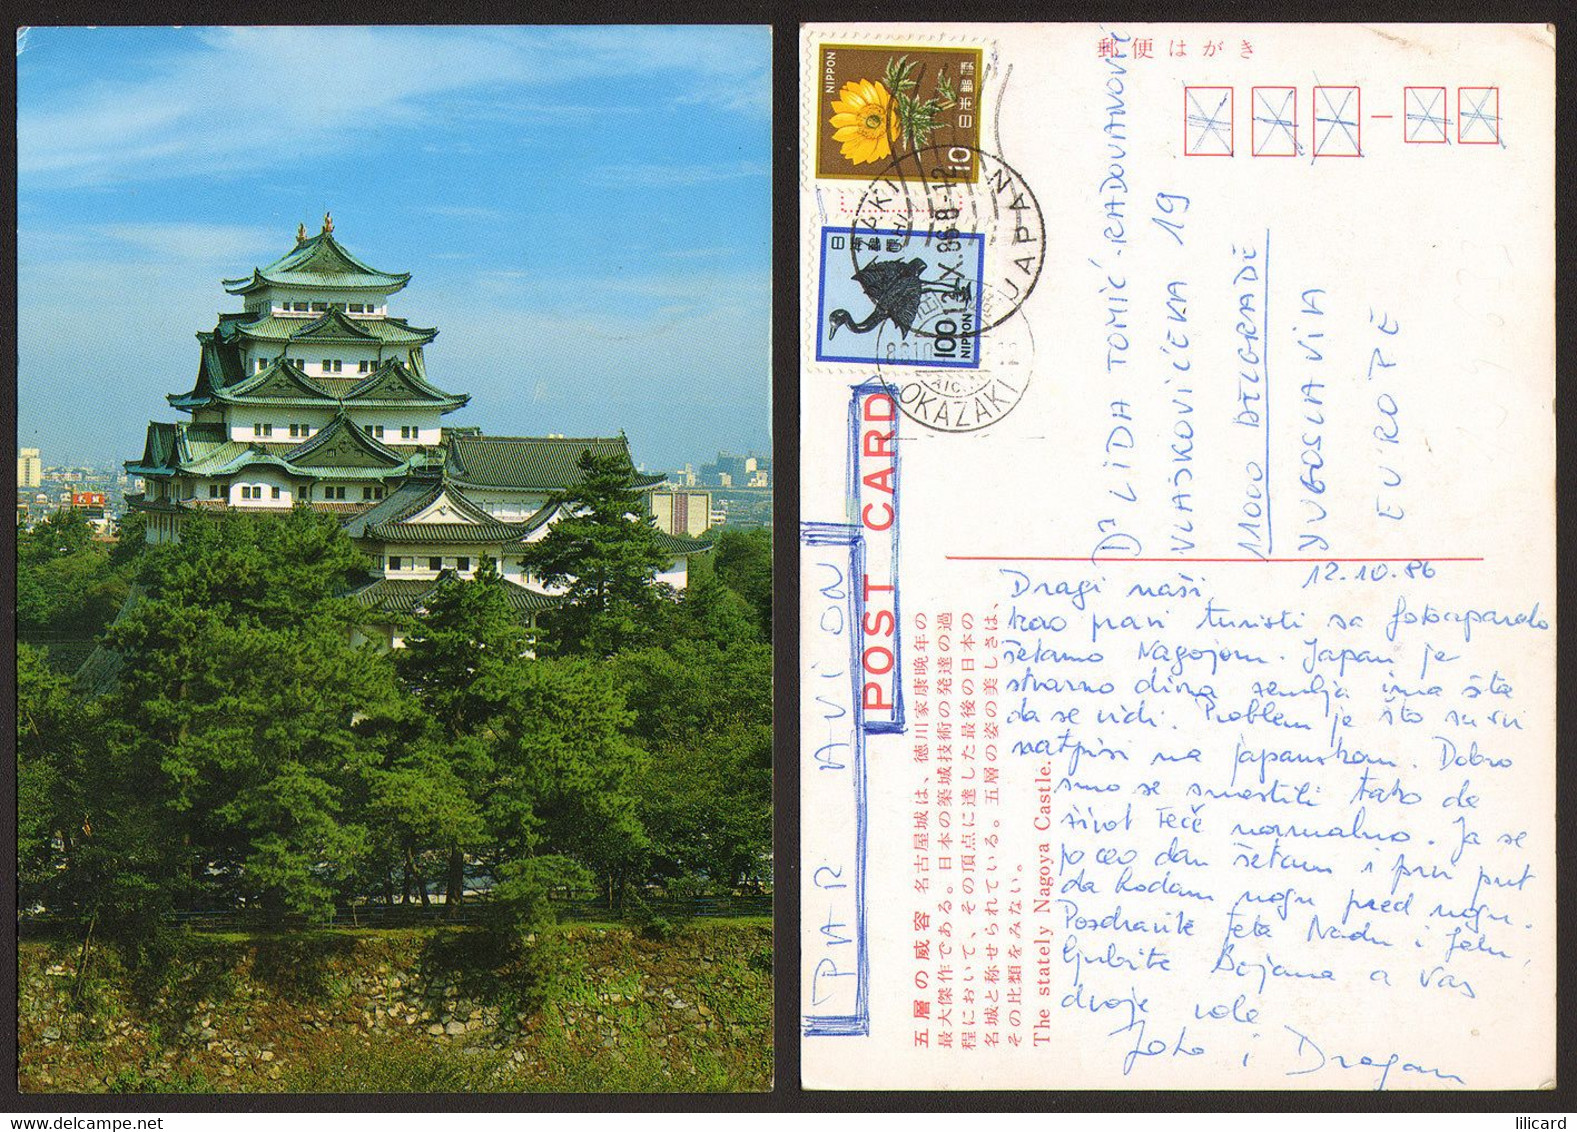 郵便はがき
NIPPON
日本郵便
10
日本郵便
100
NIPPON
OKAZAKI
12.X.86. 8-12
JAPAN
OKAZAKI
POST CARD
PAR AVION
Dr LIDA TOMIĆ-RADOVANOVIĆ
VLAJKOVIĆEVA 19
11000 BEOGRAD
YUGOSLAVIA
EUROPE
12.10.86
Dragi naši,
kao pravi turisti sa fotoaparato
šetamo Nagojom. Japan je
stvarno divna zemlja ima šta
da se vidi. Problem je što su svi
natpisi na japanskom. Dobro
smo se smestili tako da
život teče normalno. Ja se
po ceo dan šetam i prvi put
da hodam nogu pred nogu.
Pozdravite Nadu i
ljubite Bojana a vas
dvoje vole
i Dragan
五層の威容 名古屋城は、徳川家康晩年の
最大傑作である。日本の築城技術の発達の過
程において、その頂点に達した最後の日本の
名城と称せられている。五層の姿の美しさは、
その比類をみない。
The stately Nagoya Castle.
lilicard